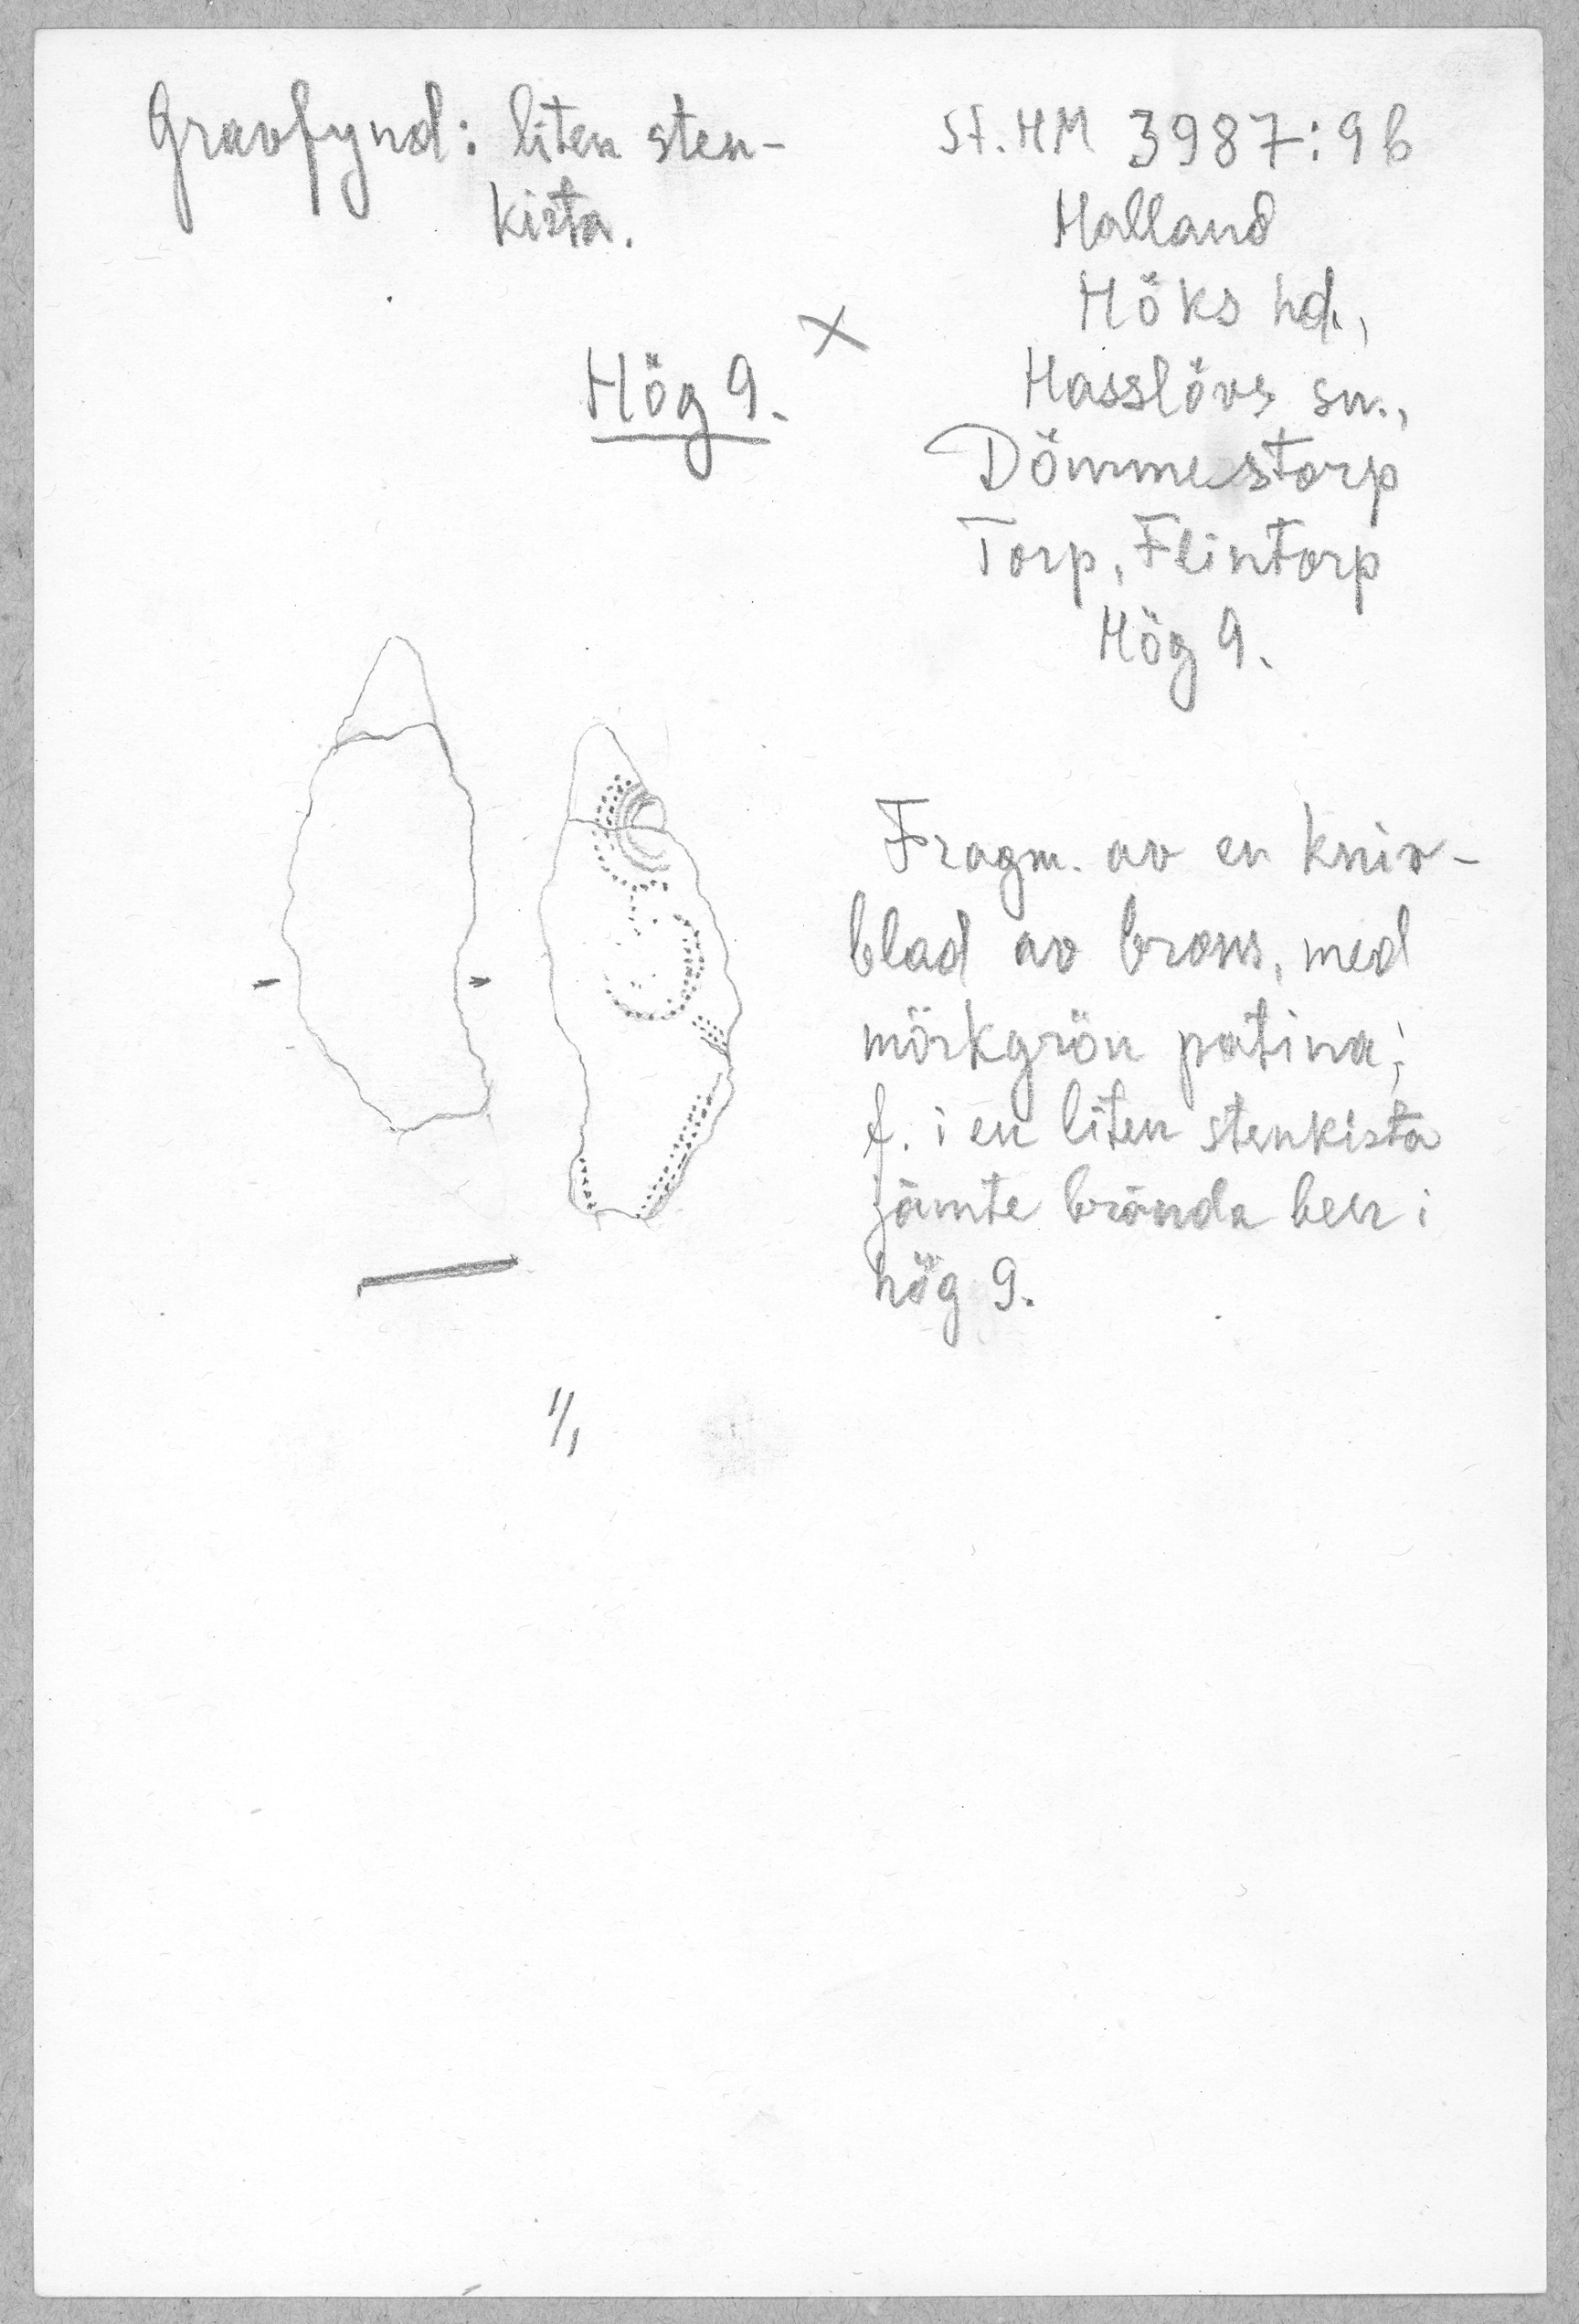 Gravfynd: liten sten-
kista.
Hög 9.
St. HM 3987:9b
Halland
Höks hd.,
Hasslövs sn.,
Dömmestorp
Torp, Flintorp
Hög 9.
Fragm. av en kniv-
blad av brons, med
mörkgrön patina;
f. i en liten stenkista
jämte brända ben i
hög 9.
1/1